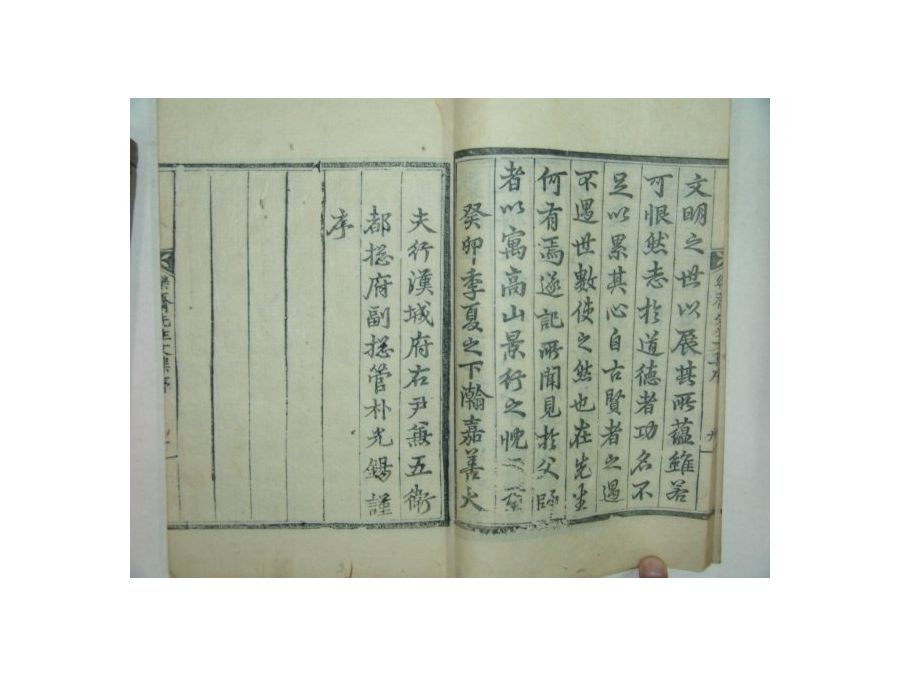 文明之世以展其所蘊雖若
可恨然志於道德者功名不
足以累其心自古賢者之遇
不遇世數使之然也在先生
何有焉遂記所聞見於父師
者以寓高山景行之悅
癸卯季夏之下瀚嘉善大
夫行漢城府右尹兼五衛
都摠府副摠管朴光錫謹
序
樂齋先生文集序